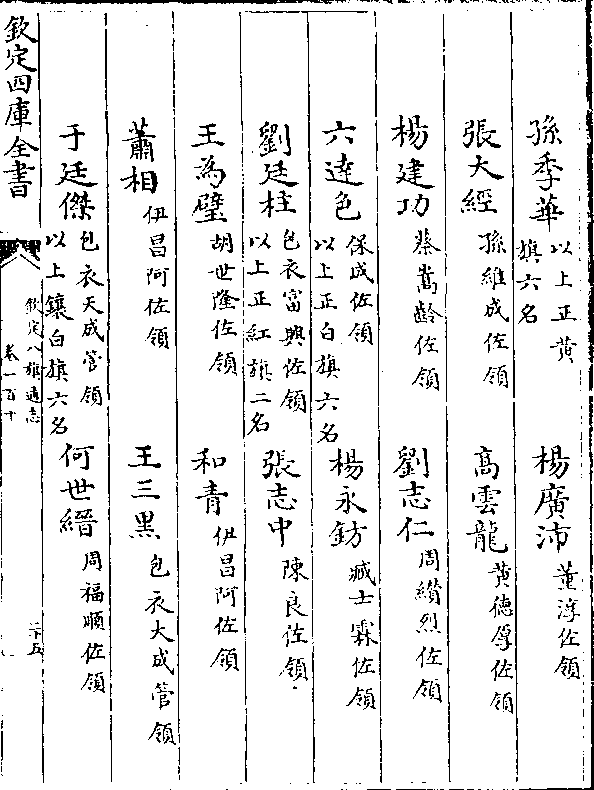 孫季華 以上正黄旗六名 楊廣沛 董淳佐領
張大經 孫維成佐領 髙雲龍 黄徳厚佐領
楊建功 蔡嵩齡佐領 劉志仁 周纘烈佐領
六達色 保成佐領 以上正白旗六名 楊永鈁 臧士霖佐領
劉廷柱 包衣富興佐領 以上正紅旗二名 張志中 陳良佐領
王為璧 胡世隆佐領 和青 伊昌阿佐領
蕭相 伊昌阿佐領 王三黑 包衣大成管領
于廷傑 包衣天成管領 以上鑲白旗六名 何世縉 周福順佐領
欽定四庫全書 欽定八旗通志 卷一百十 二十五